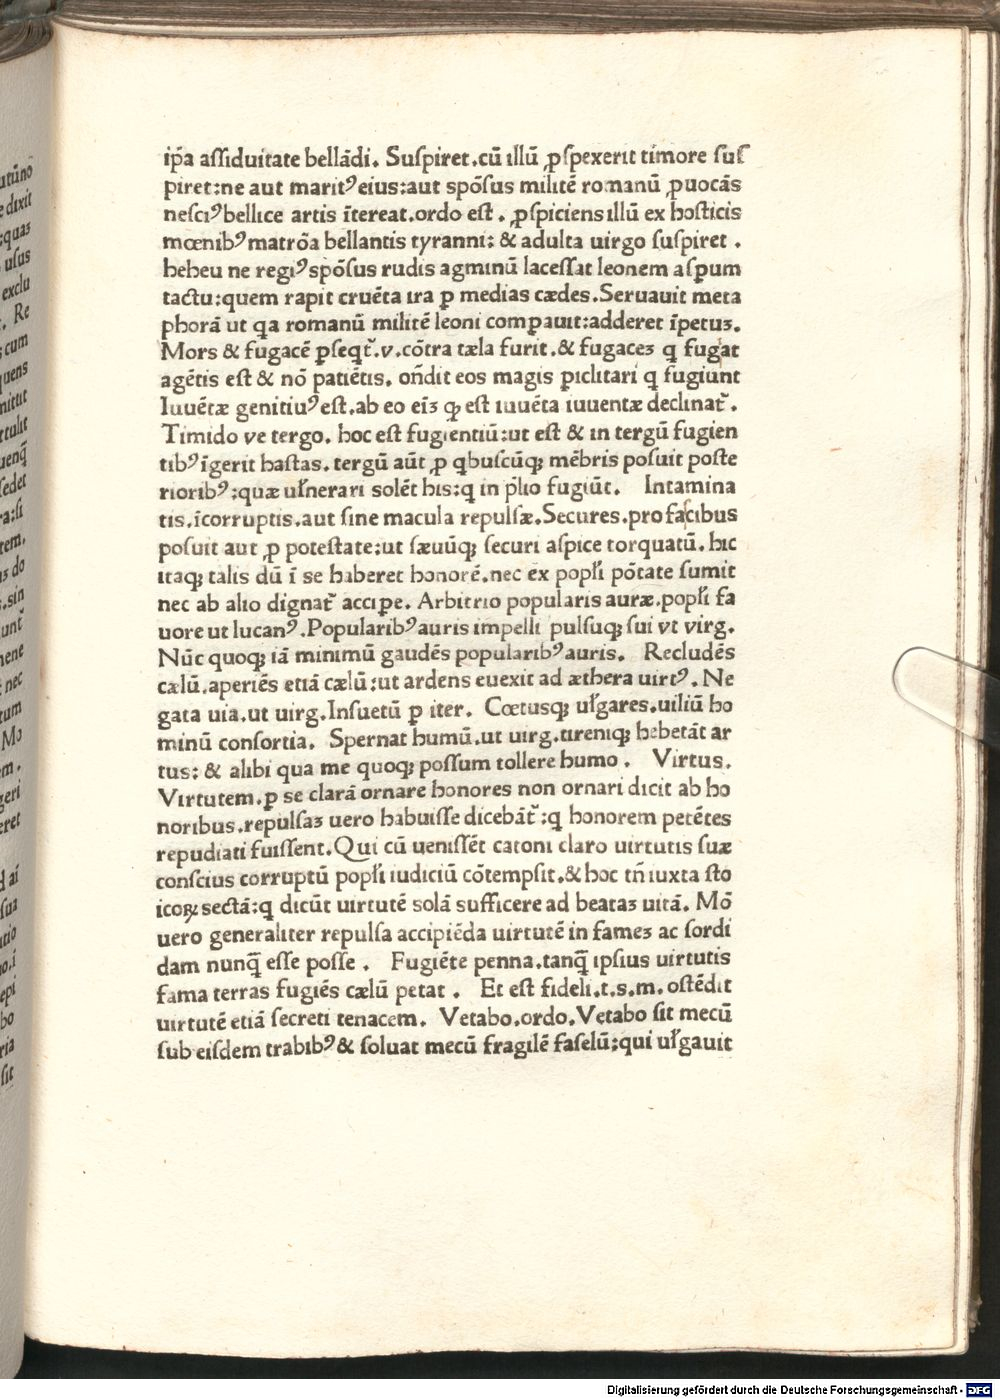 ip̄a aſſiduitate bellādi. Suſpiret.cū illū ꝓſpexerit timore ſuſ
piret:ne aut maritꝰ eius:aut spōſus militē romanū ꝓuocās
neſciꝰ bellice artis ītereat.ordo est. ꝓſpiciens illū ex hoſticis
mœnibꝰ matrōa bellantis tyranni: & adulta uirgo ſuſpiret .
heheu ne regiꝰ spōſus rudis agminū laceſſat leonem aſꝑum
tactu:quem rapit cruēta ira ꝑ medias cædes.Seruauit meta
phorā ut qa romanū militē leoni comꝑauit:adderet īpetuꝫ.
Mors & fugacē ꝑſeqt̄.v.cōtra tæla furit.& fugaceꝫ q fugat
agētis est & nō patiētis. on̄dit eos magis ꝑiclitari q fugiunt
Iuuētæ genitiuꝰ est.ab eo eīꝫ ꝙ est iuuēta iuuentæ declinat̄.
Timido ve tergo. hoc est fugientiū:ut est & in tergū fugien
tibꝰ īgerit haſtas. tergū aūt ꝓ qbuſcūqꝫ mēbris poſuit poſte
rioribꝰ:quæ uƚnerari ſolēt his:q in p̄lio fugiūt. Intamina
tis.īcorruptis.aut ſine macula repulſæ.Secures.pro facibus
poſuit aut ꝓ poteſtate:ut ſæuūqꝫ ſecuri aſpice torquatū. hic
itaqꝫ talis dū ī se haberet honorē.nec ex popƚi pōtate ſumit
nec ab alio dignat̄ acciꝑe. Arbitrio popularis auræ.popƚi fa
uore ut lucanꝰ.Popularibꝰ auris impelli pulſuqꝫ ſui vt virg.
Nūc quoqꝫ iā minimū gaudēs popularibꝰ auris. Recludēs
cælū.aperiēs etiā cælū:ut ardens euexit ad æthera uirtꝰ. Ne
gata uia.ut uirg.Inſuetū ꝑ iter. Cœtusqꝫ uƚgares.uiliū ho
minū conſortia. Spernat humū.ut uirg.tireniqꝫ hebetāt ar
tus: & alibi qua me quoqꝫ poſſum tollere humo . Virtus.
Virtutem.ꝑ ſe clarā ornare honores non ornari dicit ab ho
noribus.repulſaꝫ uero habuiſſe dicebāt̄:q honorem petētes
repudiati fuiſſent.Qui cū ueniſſēt catoni claro uirtutis ſuæ
conſcius corruptū popƚi iudiciū cōtempſit.& hoc tn̄ iuxta ſto
icoꝝ sectā:q dicūt uirtutē ſolā sufficere ad beataꝫ uitā. Mō
uero generaliter repulſa accipiēda uirtutē in fameꝫ ac ſordi
dam nunq̄ esse posse . Fugiēte penna.tanq̄ ipſius uirtutis
fama terras fugiēs cælū petat . Et est fideli.t.s.m. oſtēdit
uirtutē etiā ſecreti tenacem. Vetabo.ordo.Vetabo ſit mecū
ſub eiſdem trabibꝰ & ſoluat mecū fragilē faſelū:qui uƚgauit
Digitalisierung gefördert durch die Deutsche Forschungsgemeinschaft - DFG